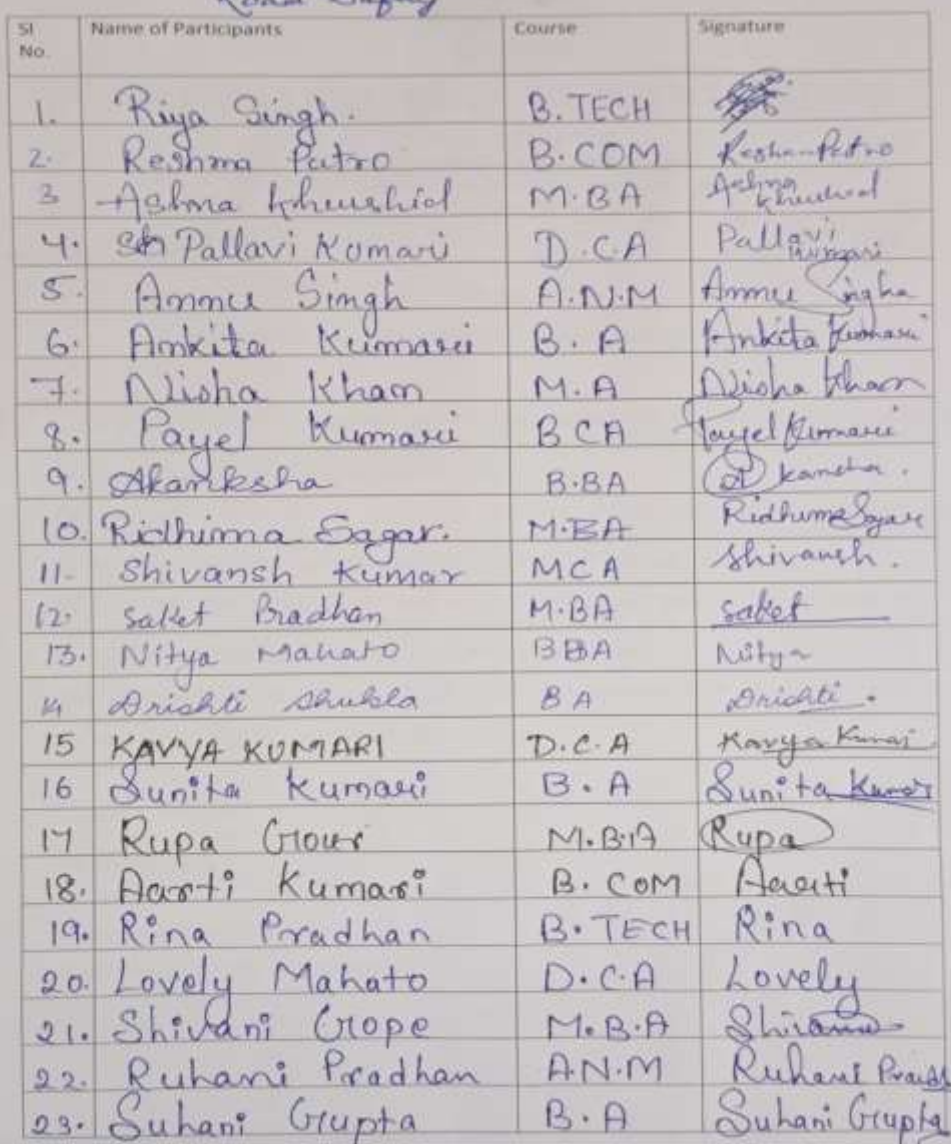 Road Safety
Sl No. Name of Participants Course Signature
1. Riya Singh. B.TECH
2. Reshma Patro B.COM Reshma Patro
3 Ashma Khurshid M.BA Ashma Khurshid
4. Pallavi Kumari D.C.A Pallavi Kumari
5. Annu Singh A.N.M Annu Singha
6. Ankita Kumari B.A Ankita Kumari
7. Nisha Khan M.A Nisha Khan
8. Payel Kumari BCA Payel Kumari
9. Akanksha B.BA Akansha.
10. Ridhima Sagar. M.BA Ridhima Sagar
11- Shivansh Kumar MCA Shivansh.
12. Saket Pradhan M.BA saket
13. Nitya Mahato BBA Nitya
14 Drishti Shukla BA Drishti.
15 KAVYA KUMARI D.C.A Kavya Kumari
16 Sunita Kumari B.A Sunita Kumari
17 Rupa Gour M.B.A Rupa
18. Aarti Kumari B.COM Aarti
19. Rina Pradhan B.TECH Rina
20. Lovely Mahato D.C.A Lovely
21. Shivani Gope M.B.A Shivani
22. Ruhani Pradhan A.N.M Ruhani Pradh
23. Suhani Gupta B.A Suhani Gupta